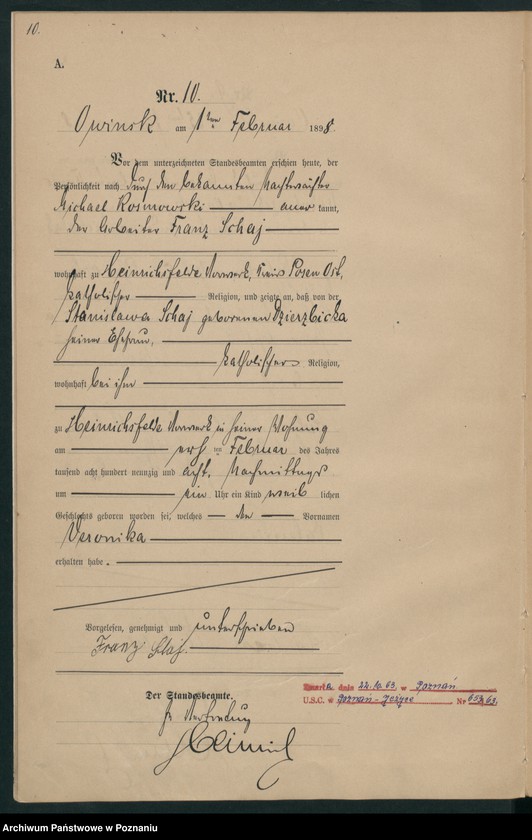 10.
A.
Nr. 10.
Owinsk am 1ten Februar 1898
Vor dem unterzeichneten Standesbeamten erschien heute, der
Persönlichkeit nach durch den bekannten Nachtwächter
Michael Rosmowski anerkannt,
der Arbeiter Franz Schaj
wohnhaft zu Heinrichsfelde Vorwerk, Kreis Posen Ost,
katholischer Religion, und zeigte an, daß von der
Stanislawa Schaj geborenen Dzierzbicka
seiner Ehefrau,
katholischer Religion,
wohnhaft bei ihm
zu Heinrichsfelde Vorwerk in seiner Wohnung
am ersten Februar des Jahres
tausend acht hundert neunzig und acht, Nachmittags
um ein Uhr ein Kind weiblichen
Geschlechts geboren worden sei, welches den Vornamen
Veronika
erhalten habe.
Vorgelesen, genehmigt und unterschrieben
Franz
Der Standesbeamte.
In Vertretung
Zmarła dnia 22.10.63 w Poznań
U.S.C. w Poznań-Jeżyce Nr
Archiwum Państwowe w Poznaniu